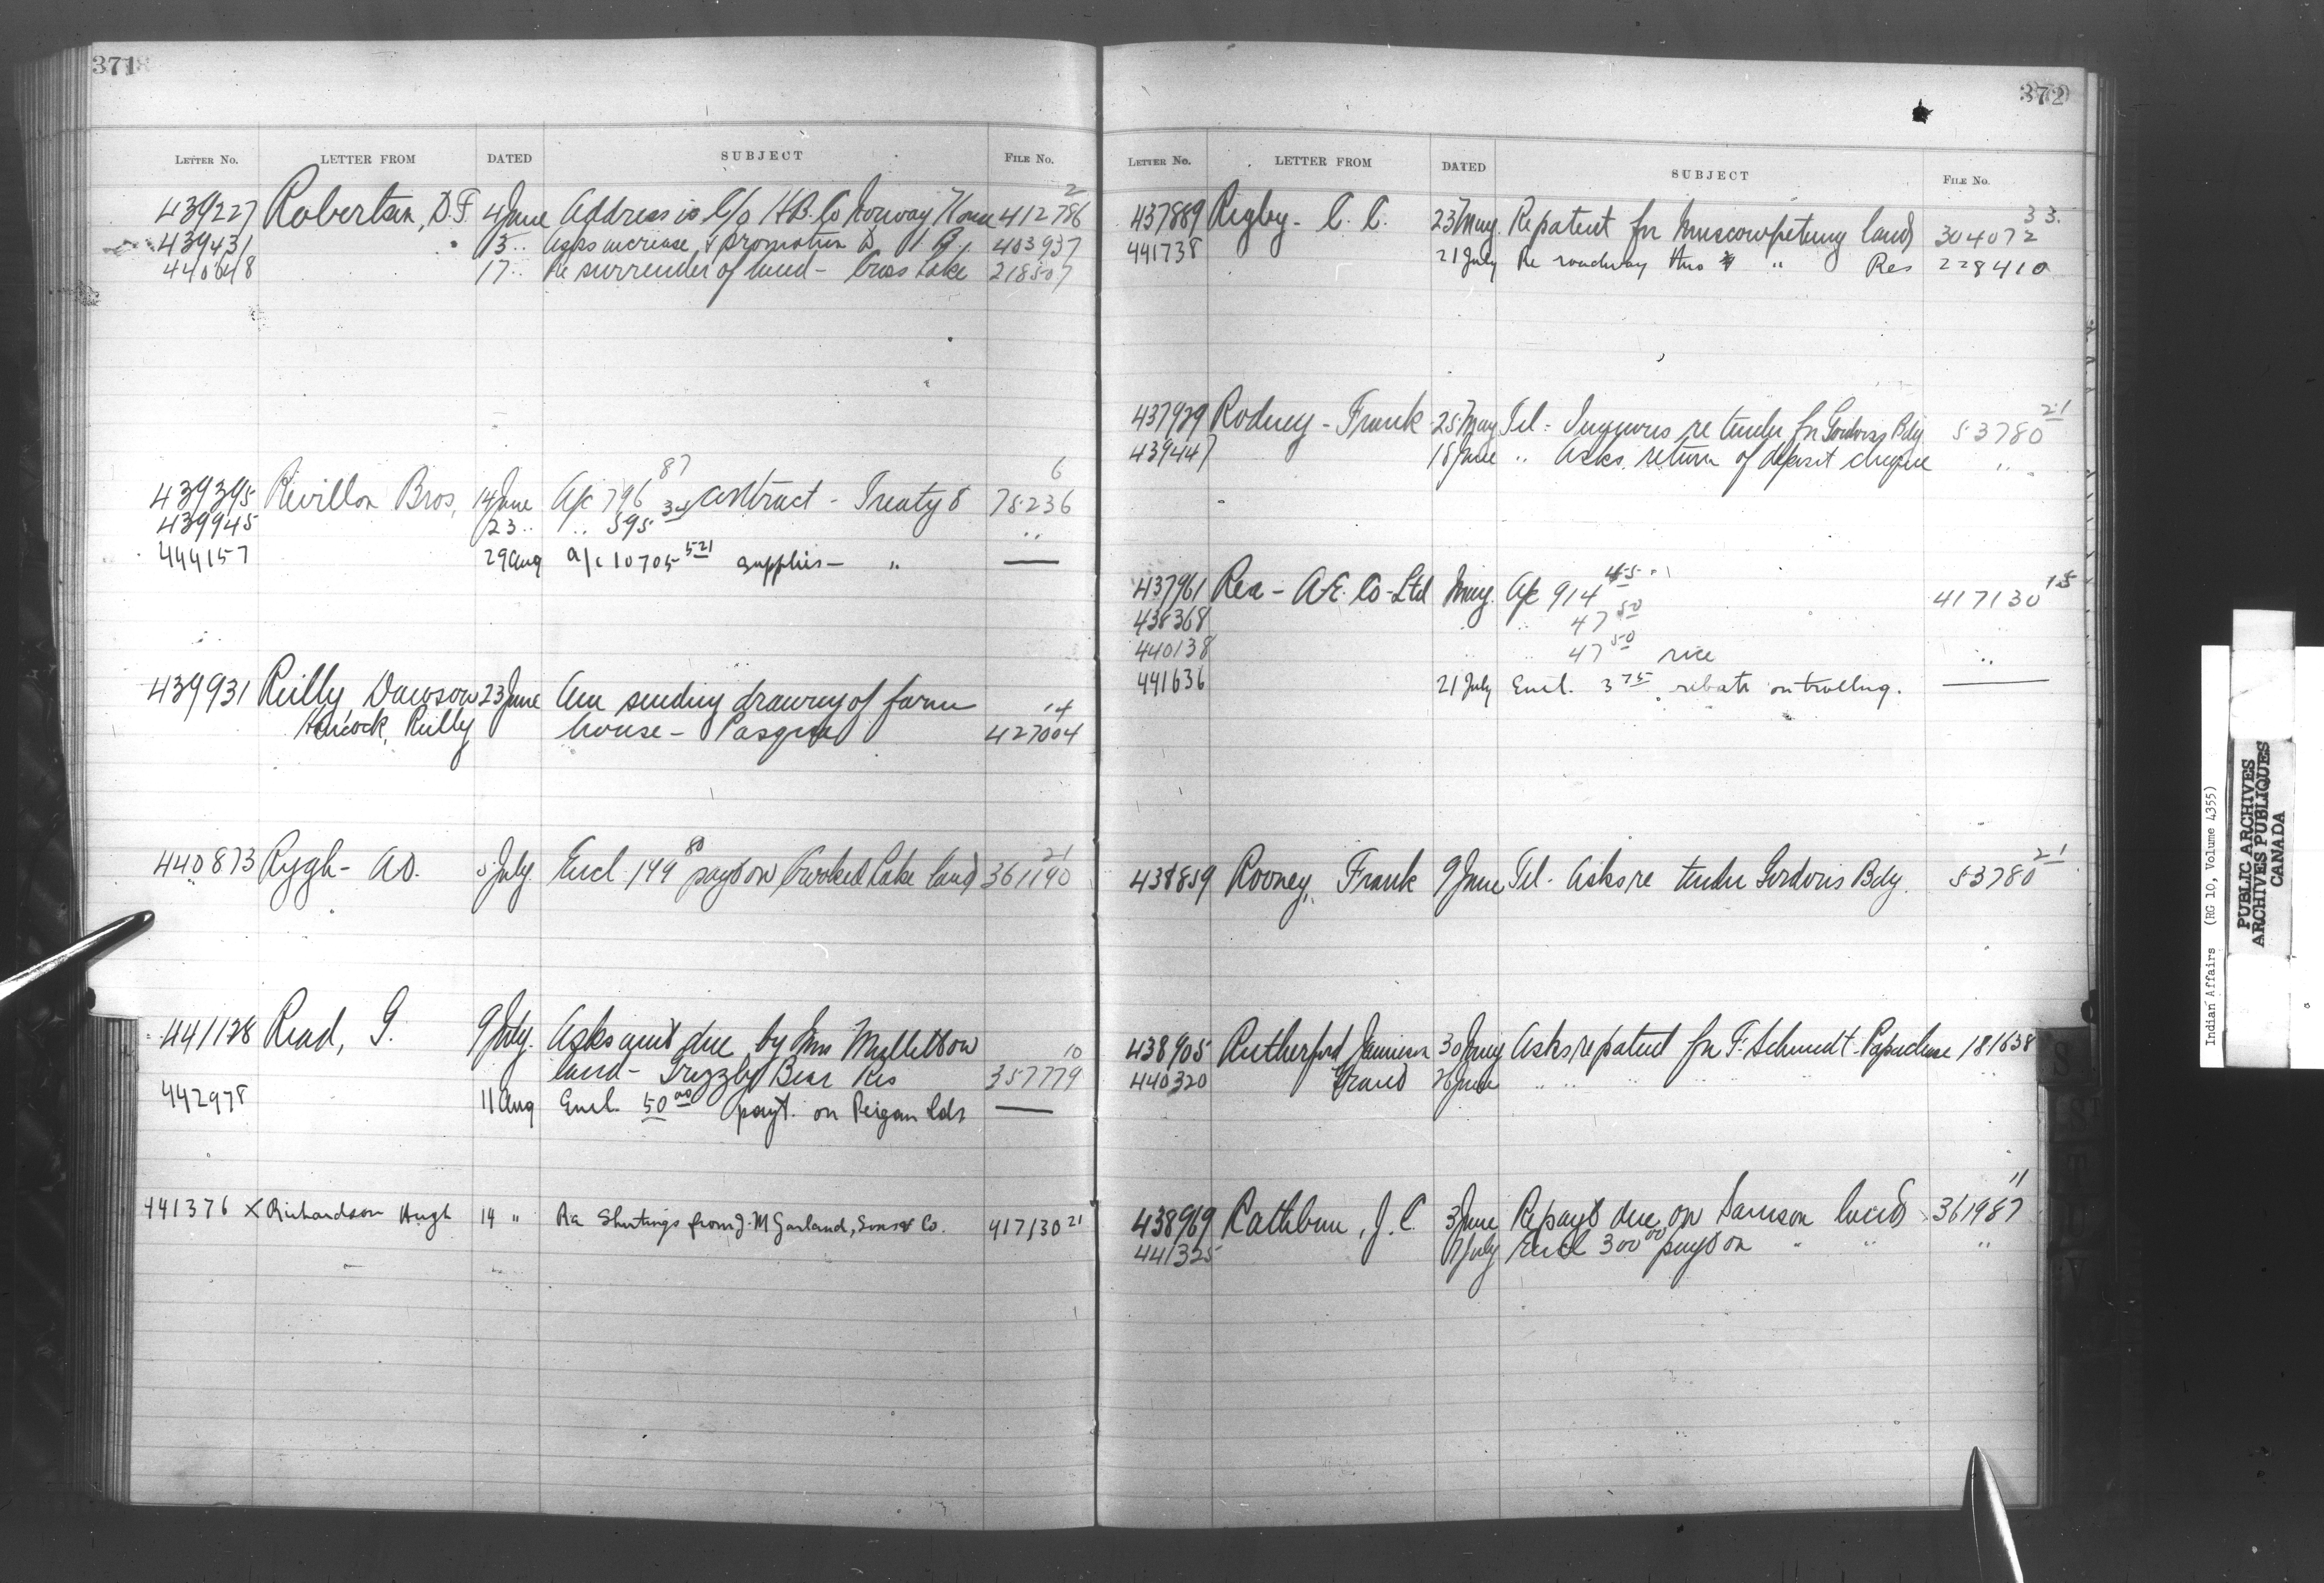 371
LETTER No. LETTER FROM DATED SUBJECT FILE No.
439227 Robertson, D.F. 4 June Address is C/o H.B. Co Norway House 412786 2
439431 13 .. Asks increase & promotion 403937
440648 17 .. Re surrender of land - Cross Lake 218507
439395 Revillon Bros, 14 June A/c 796 87 contract - Treaty 8 78236 6
439945 23 .. .. 595 34 ..
444157 29 Aug a/c 10705 521 supplies - " —
439931 Reilly, Dawson 23 June Are sending drawing of farm
Hancock, Reilly house - Pasqua 427004 14
440873 Rygh - A.O. 5 July Encl 149 80 payt on Crooked Lake land 361190 21
441128 Read, G. 9 July. Asks amt due by
land - Grizzly Bear Res 357779 10
442978 11 Aug Encl. 50 00 payt. on Peigan Lds —
441376 X Richardson Hugh 14 " Re Shirtings from J. M Garland, Sons & Co. 417130 21
372
LETTER No. LETTER FROM DATED SUBJECT FILE No.
437889 Rigby - C. C. 23 May. Re patent for Muscowpetung land 304072 33.
441738 21 July Re roadway thro " Res 228410
437929 Rodney - Frank 25 May Tel - Inquires re tender for Gordons Bdg. 53780 21
439447 18 June " Asks return of deposit cheque " "
437961 Rea - A.E. Co - Ltd May. A/c 914 45 417130 15
438368 .. 47 50
440138 .. 47 50 rice ..
441636 21 July Encl. 3 75 rebate on trolling. —
438859 Rooney, Frank 9 June Tel - Asks re tender Gordons Bdg. 53780 21
438905 Rutherford Jamieson 30 May Asks re patent for F. Schmidt - Papachase 181638
440320 Grant 26 June " " " " "
438969 Rathbun, J. C. 3 June Re payt due on Samson land 361987 11
441325 July Encl 300 00 payt on " " "
Indian Affairs (RG 10, Volume 4355)
PUBLIC ARCHIVES
ARCHIVES PUBLIQUES
CANADA